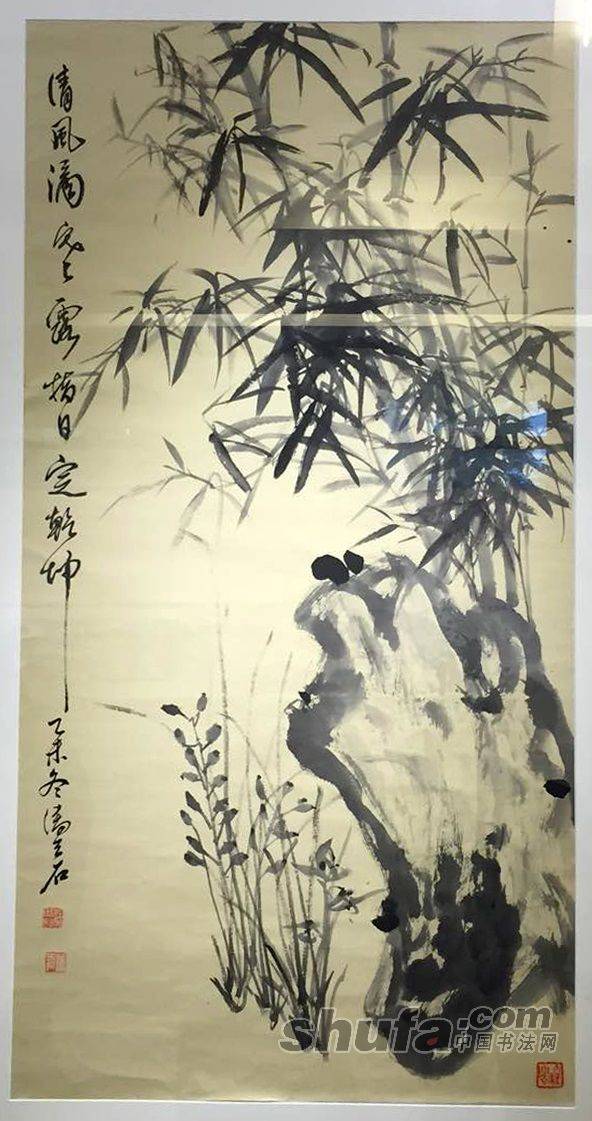 清風滴寒露指日定乾坤
乙未冬
石
shufa.com
中国书法网